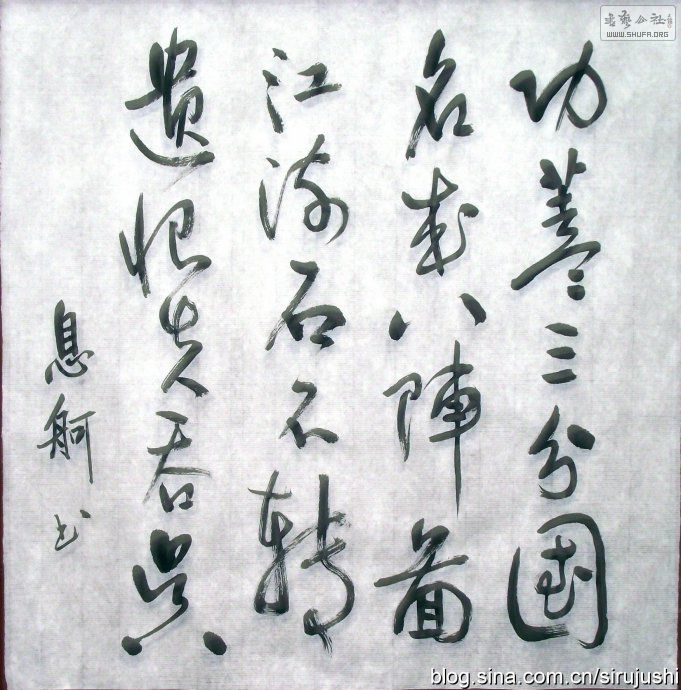 功蓋三分國
名成八陣啚
江流石不轉
遺恨失吞吳
息舸书
書藝公社
WWW.SHUFA.ORG
blog.sina.com.cn/sirujushi